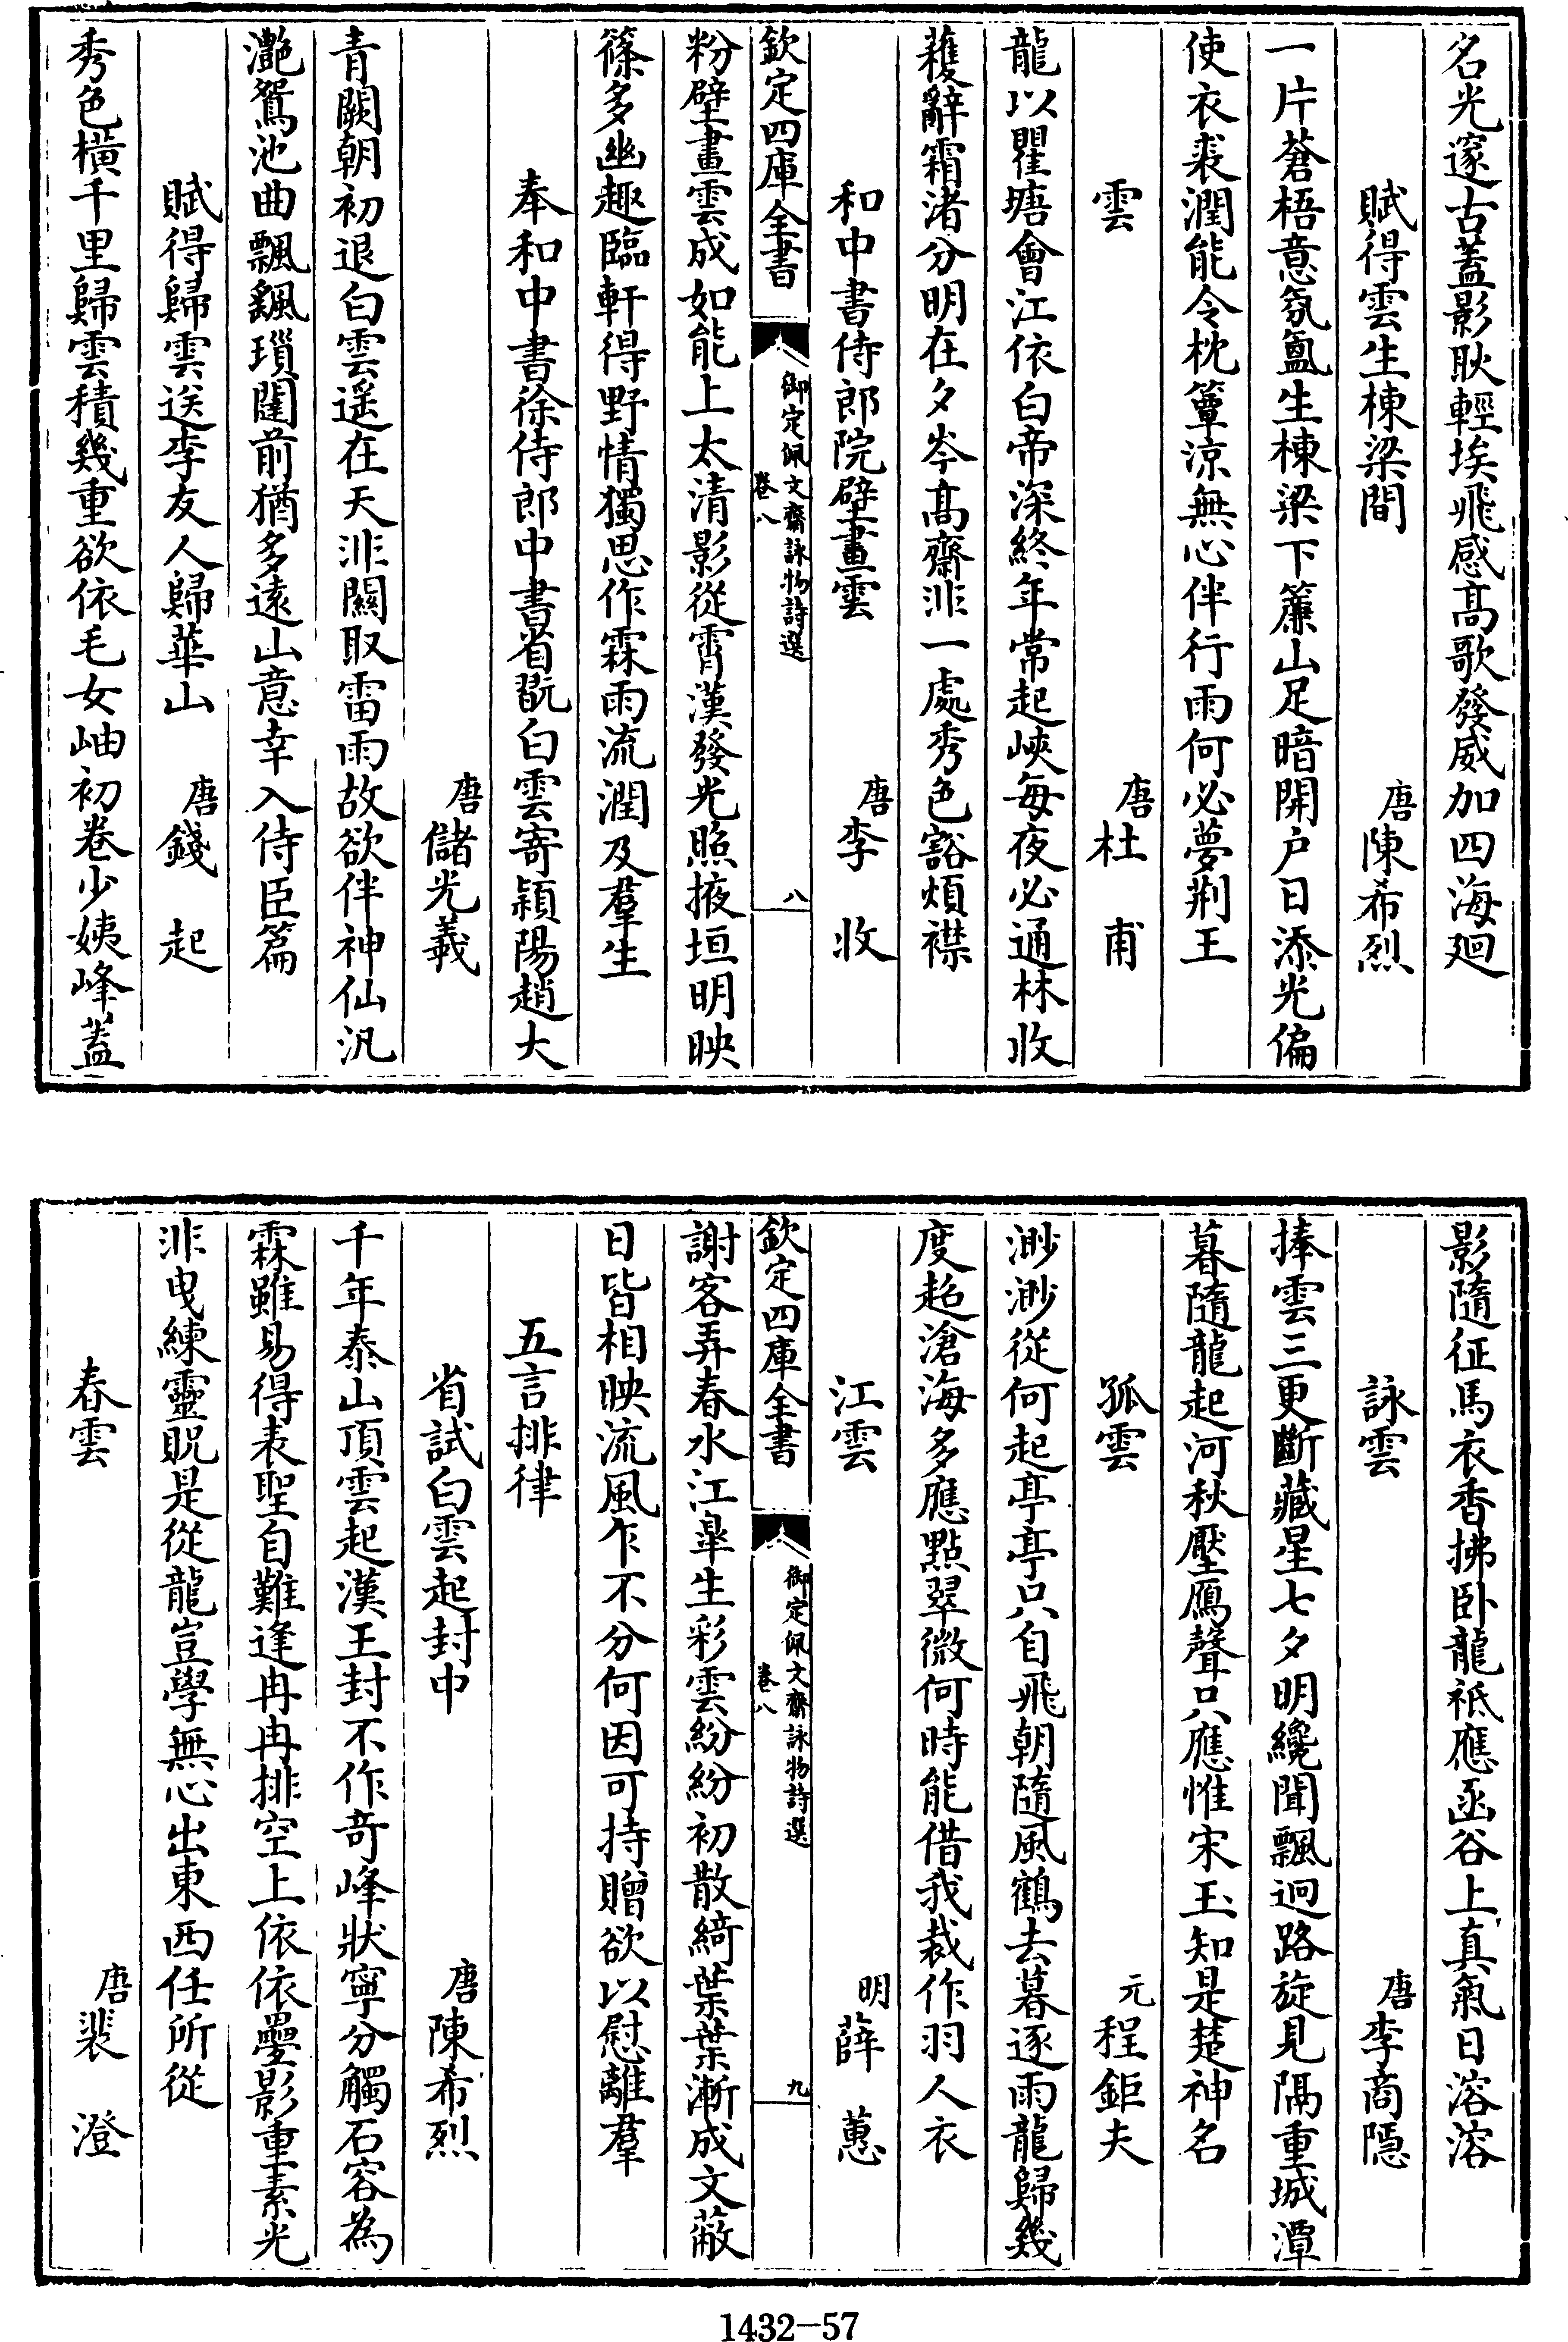 名光邃古蓋影耿輕埃飛感髙歌發威加四海廻
賦得雲生棟梁間　唐陳希烈
一片蒼梧意氛氳生棟梁下簾山足暗開户日添光偏
使衣裘潤能令枕簟涼無心伴行雨何必夢荆王
雲　唐杜甫
龍以瞿塘會江依白帝深終年常起峽每夜必通林收
穫辭霜渚分明在夕岑髙齋非一處秀色豁煩襟
和中書侍郎院壁畫雲　唐李收
欽定四庫全書　御定佩文齋詠物詩選　卷八　八
粉壁畫雲成如能上太清影從霄漢發光照掖垣明映
篠多幽趣臨軒得野情獨思作霖雨流潤及羣生
奉和中書徐侍郎中書省翫白雲寄潁陽趙大
唐儲光羲
青闕朝初退白雲遥在天非關取雷雨故欲伴神仙汎
灔鴛池曲飄颻瑣闥前猶多遠山意幸入侍臣篇
賦得歸雲送李友人歸華山　唐錢起
秀色橫千里歸雲積幾重欲依毛女岫初卷少姨峰蓋
影隨征馬衣香拂卧龍祗應函谷上真氣日溶溶
詠雲　唐李商隱
捧雲三更斷藏星七夕明纔聞飄迥路旋見隔重城潭
暮隨龍起河秋壓鴈聲只應惟宋玉知是楚神名
孤雲　元程鉅夫
渺渺從何起亭亭只自飛朝隨風鶴去暮逐雨龍歸幾
度超滄海多應點翠微何時能借我裁作羽人衣
江雲　明薛蕙
欽定四庫全書　御定佩文齋詠物詩選　卷八　九
謝客弄春水江皐生彩雲紛紛初散綺葉葉漸成文蔽
日皆相映流風乍不分何因可持贈欲以慰離羣
五言排律
省試白雲起封中　唐陳希烈
千年泰山頂雲起漢王封不作奇峰狀寧分觸石容為
霖雖易得表聖自難逢冉冉排空上依依疊影重素光
非曳練靈貺是從龍豈學無心出東西任所從
春雲　唐裴澄
1432-57